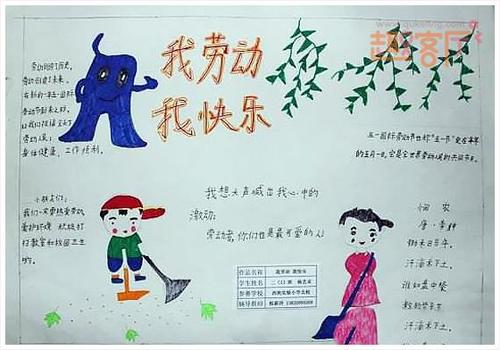 趣客厅
我劳动
我快乐
劳动创造了历史，
劳动创造了未来。
劳动人民：
身体健康，工作顺利。
五一国际劳动节也称"五一节"定在每年
的五月一日。它是全世界劳动人民的共同节日。
小朋友们：
我们一定要热爱劳动
爱护环境
打教室和校园卫生
哟。
我想大声喊出我心中的
激动：
劳动者，你们也是最可爱的人！
悯农
唐·李绅
锄禾日当午，
汗滴禾下土。
谁知盘中餐
粒粒皆辛苦
汗滴禾下土。
作品名称 我劳动 我快乐
学生姓名
参赛学校
辅导教师